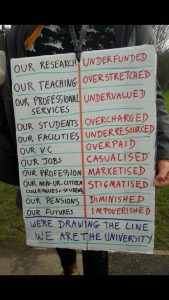 OUR RESEARCH UNDERFUNDED
OUR TEACHING OVERSTRETCHED
OUR PROFESSIONAL SERVICES UNDERVALUED
OUR STUDENTS OVERCHARGED
OUR FACILITIES UNDERRESOURCED
OUR VC OVERPAID
OUR JOBS CASUALISED
OUR PROFESSION MARKETISED
OUR NON-UK CITIZEN COLLEAGUES & STUDENTS STIGMATISED
OUR PENSIONS DIMINISHED
OUR FUTURES IMPOVERISHED
WE'RE DRAWING THE LINE
WE ARE THE UNIVERSITY